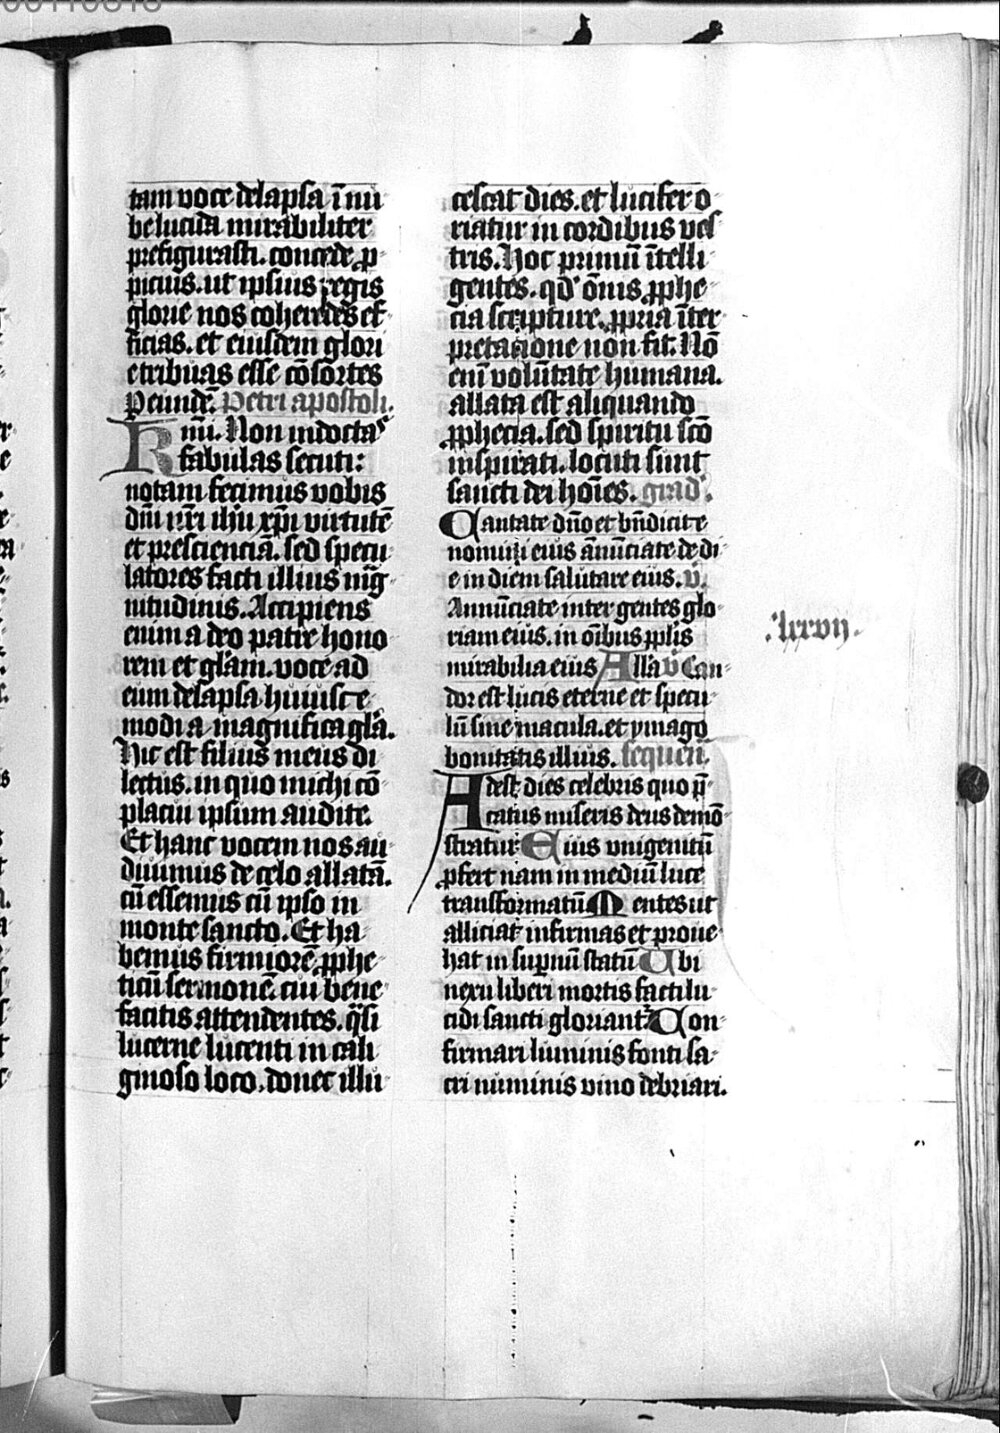 tam voce delapsa ī nu
be lucida mirabiliter
prefigurasti. concede ꝓ
picius. ut ipsius regis
glorie nos coheredes ef
ficias. et eiusdem glori
e tribuas esse cōsortes
P eundē. Petri apostoli.
Kmi. Non indoctas
fabulas secuti:
notam fecimus vobis
dn̄i nr̄i ih̄u xp̄i virtutē
et prescienciā. sed specu
latores facti illius mag
nitudinis. Accipiens
enim a deo patre hono
rem et glām. voce ad
eum delapsa huiusce
modi a magnifica glā.
Hic est filius meus di
lectus. in quo michi cō
placui ipsum audite.
Et hanc vocem nos au
diuimus de celo allatā.
cū essemus cū ipso in
monte sancto. Et ha
bemus firmiorē ꝓphe
ticū sermonē cui bene
facitis attendentes. q̄si
lucerne lucenti in cali
ginoso loco. donec illu
cescat dies. et lucifer o
riatur in cordibus ves
tris. Hoc primū ītelli
gentes. qd' ōnis ꝓphe
cia scripture. ꝓpria īter
pretatione non fit. Nō
enī volūtate humana.
allata est aliquando
ꝓphecia. sed spiritu scō
inspirati. locuti sunt
sancti dei hoīes. grad'.
Cantate dn̄o et bn̄dicite
nomini eius ānūciate de di
e in diem salutare eius. v̄.
Annūciate inter gentes glo
riam eius. in oībus pplīs
mirabilia eius Alla v̄ Can
dor est lucis eterne et specu
lū sine macula. et ymago
bonitatis illius. sequen̄.
Adest dies celebris quo p̄
catus miseris deus demō
stratur Eius vnigenitū
ꝓfert nam in mediū luce
transformatū Mentes ut
alliciat infirmas et proue
hat in supnū statū Ubi
nexu liberi mortis facti lu
cidi sancti gloriant² Con
firmari luminis fonti sa
cri numinis vino debriari.
.lxxvij.